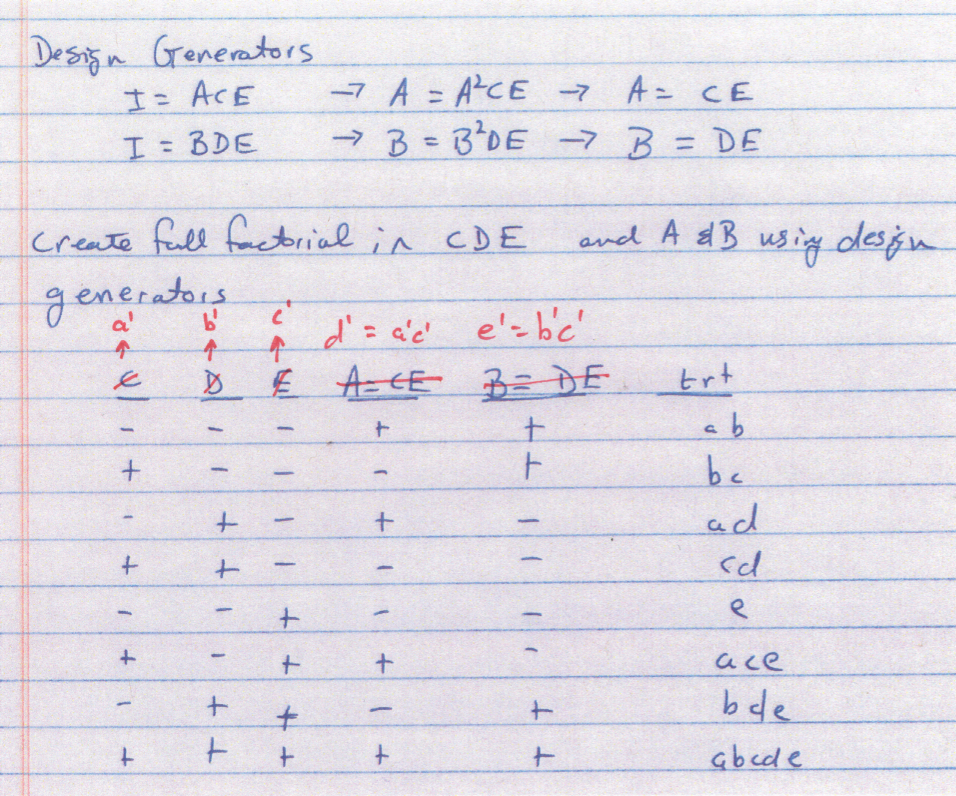 Design Generators
I = ACE → A = A²CE → A = CE
I = BDE → B = B²DE → B = DE
Create full factorial in CDE and A & B using design
generators
a' b' c' d' = a'c' e' = b'c'
↑ ↑ ↑
C D E A = CE B = DE trt
- - - + + ab
+ - - - + bc
- + - + - ad
+ + - - - cd
- - + - - e
+ - + + - ace
- + + - + bde
+ + + + + abcde